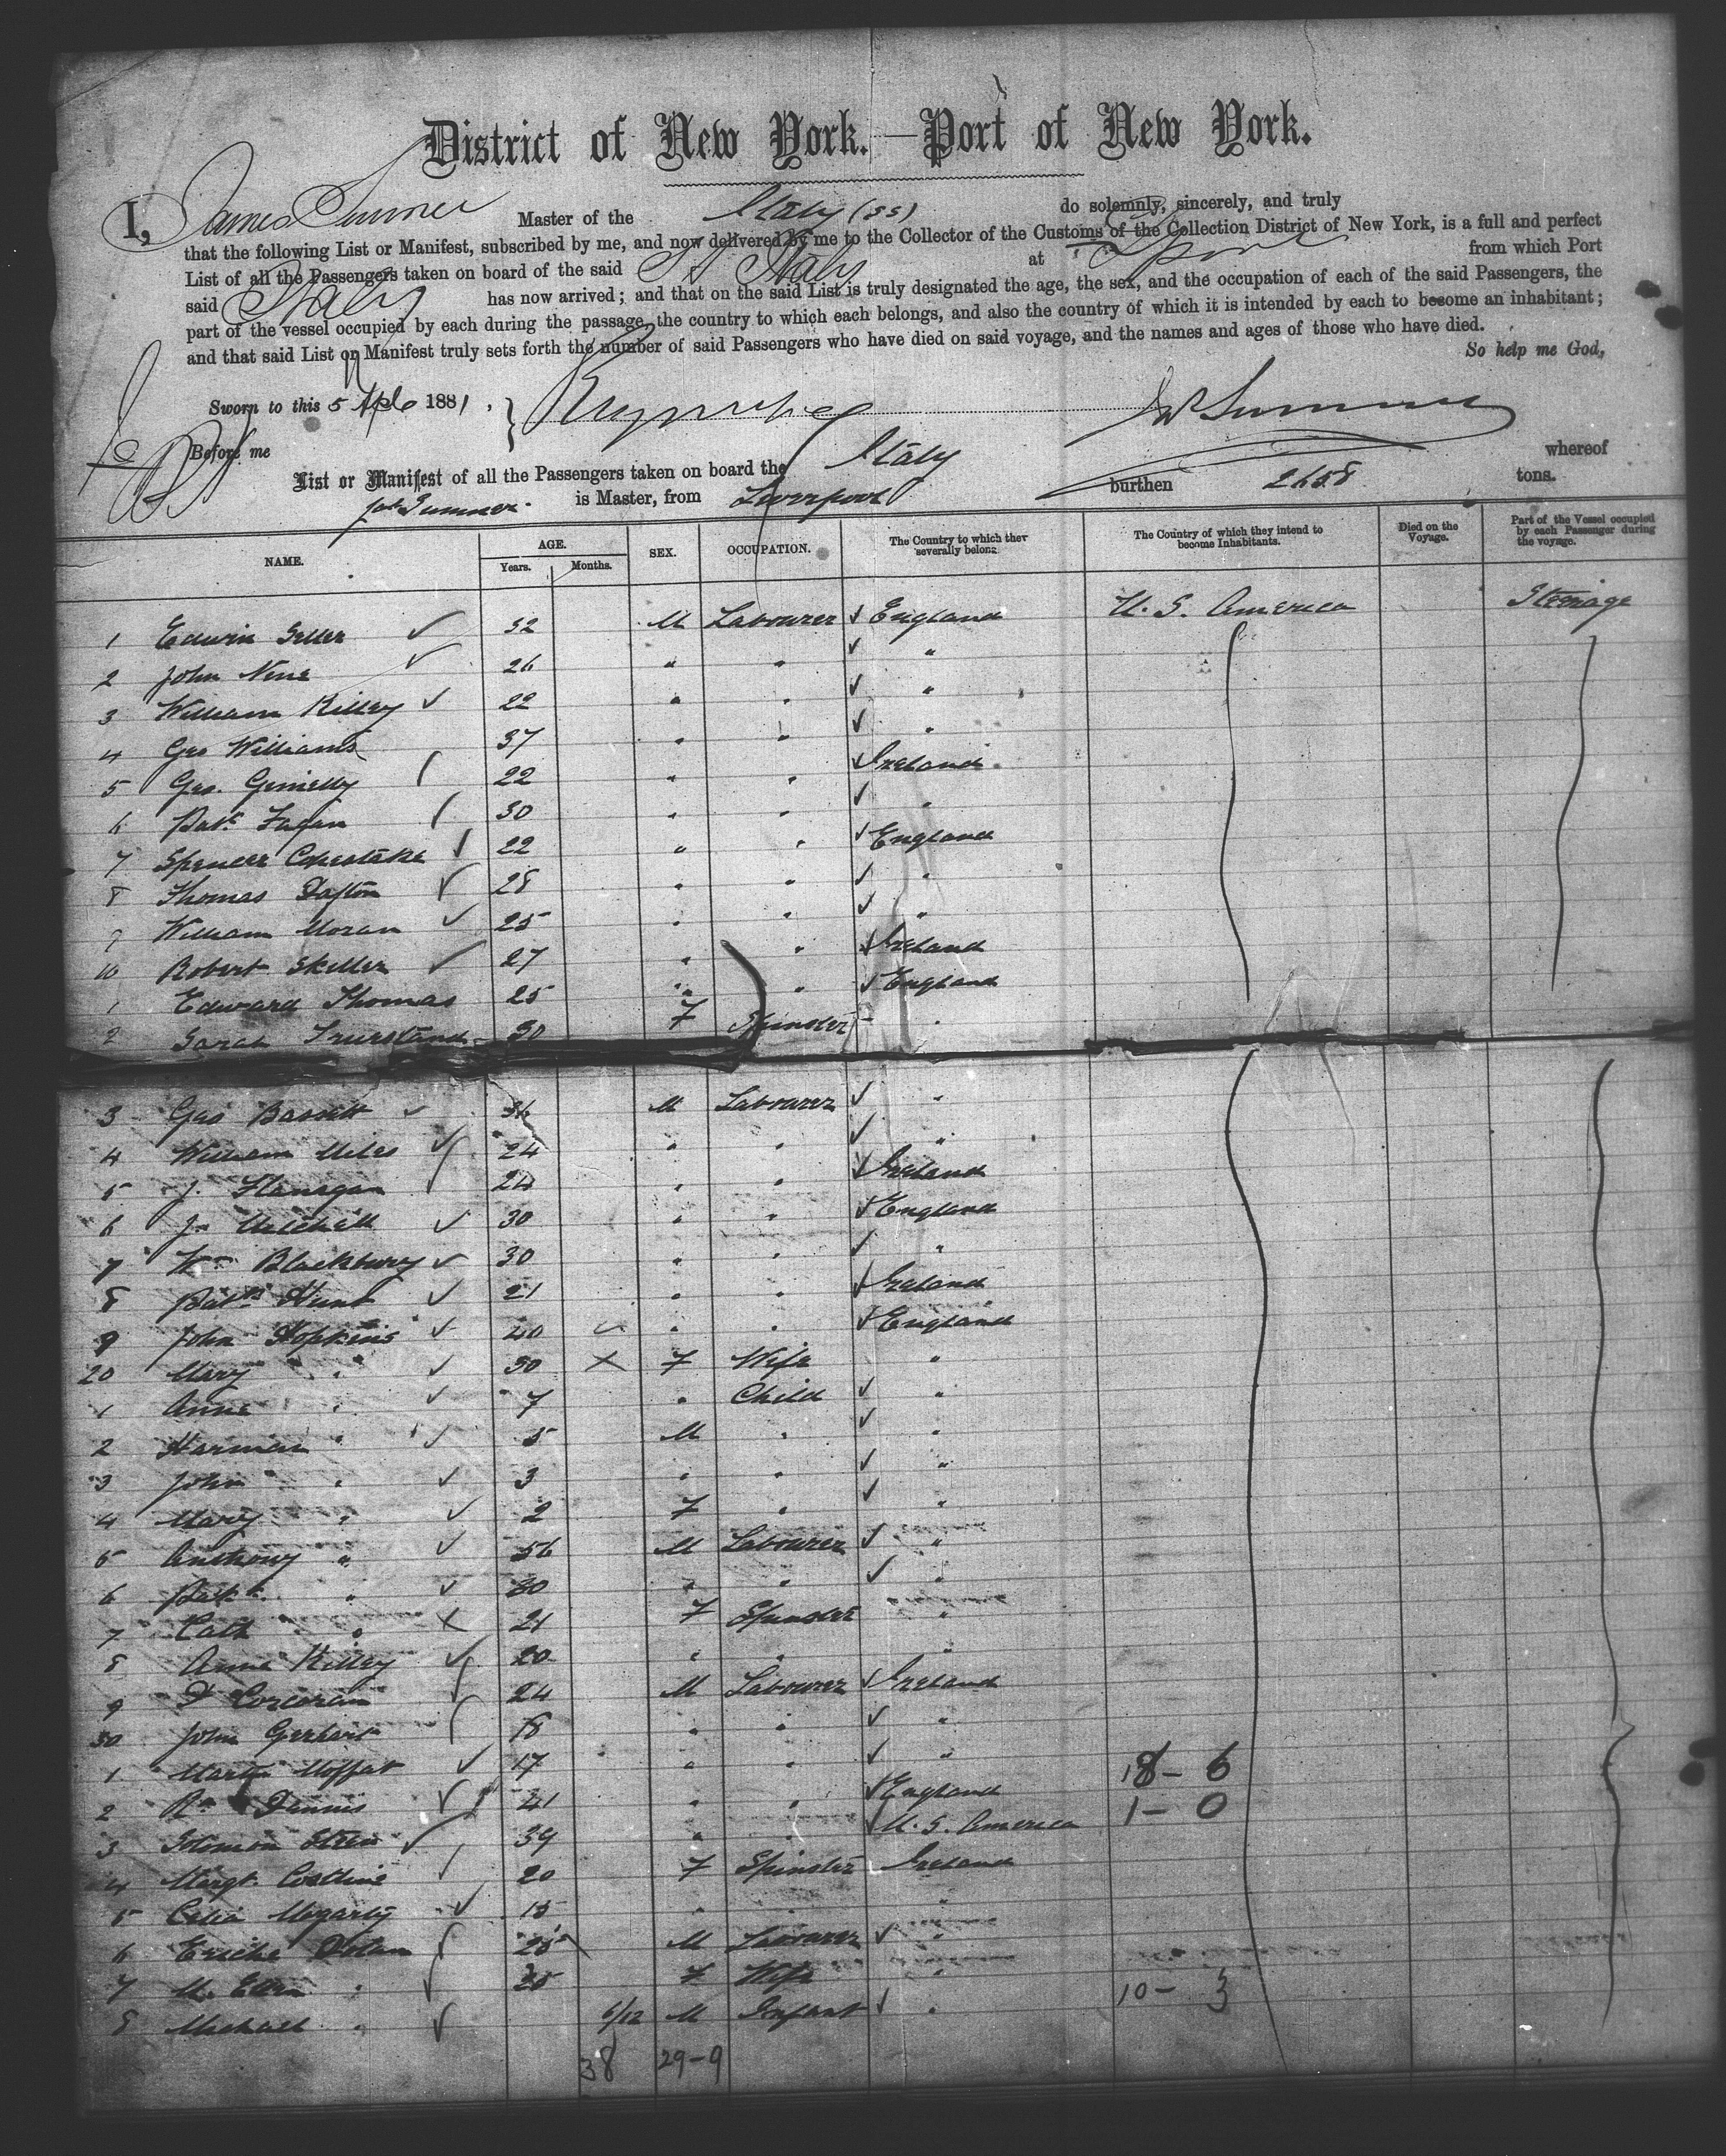 District of New York.—Port of New York.
I, James Sumner Master of the Italy (SS) do solemnly, sincerely, and truly
that the following List or Manifest, subscribed by me, and now delivered by me to the Collector of the Customs of the Collection District of New York, is a full and perfect
List of all the Passengers taken on board of the said SS Italy at Lpool from which Port
said Italy has now arrived; and that on the said List is truly designated the age, the sex, and the occupation of each of the said Passengers, the
part of the vessel occupied by each during the passage, the country to which each belongs, and also the country of which it is intended by each to become an inhabitant;
and that said List or Manifest truly sets forth the number of said Passengers who have died on said voyage, and the names and ages of those who have died.
So help me God,
Sworn to this 5 1881, } Sumner
Before me
List or Manifest of all the Passengers taken on board the Italy whereof
Sumner is Master, from Liverpool burthen 2658 tons.
NAME. AGE. SEX. OCCUPATION. The Country to which they severally belong. The Country of which they intend to become Inhabitants. Died on the Voyage. Part of the Vessel occupied by each Passenger during the voyage.
Years. Months.
1 Edwin 32 M Labourer England U. S. America Steerage
2 John 26 " " "
3 William Killey 22 " " "
4 Geo Williams 37 " " "
5 Geo. 22 " " Ireland
6 Patk Fagan 30 " " "
7 Spencer Copestake 22 " " England
8 Thomas 28 " " "
9 William Moran 25 " " "
10 Robert Skeller 27 " " Ireland
1 Edward Thomas 25 " " England
2 Sarah 30 F Spinster "
3 Geo Bassett M Labourer "
4 William Miles 24 " " "
5 J. Flanagan 24 " " Ireland
6 Jn Mitchell 30 " " England
7 Wm Blackbury 30 " " "
8 Patk Hunt 21 " " Ireland
9 John Hopkins 40 " " England
20 Mary " 30 F Wife "
1 Anne " 7 " Child "
2 Harman " 5 M " "
3 John " 3 " " "
4 Mary " 2 F " "
5 Anthony " 56 M Labourer "
6 Patk " " " "
7 Cath " 21 F Spinster "
8 Anne Killey 20 " " "
9 Corcoran 24 M Labourer Ireland
30 John 18 " " "
1 Martin Moffat 17 " " " 18 - 6
2 Dennis 41 " " England 1 - 0
3 Solomon 39 " " U. S. America
4 Margt. 20 F Spinster Ireland
5 Celia 15 " " "
6 Dolan M Labourer "
7 M. Ellen " F Wife "
8 Michael " 6/12 M Infant " 10 - 3
38 29-9